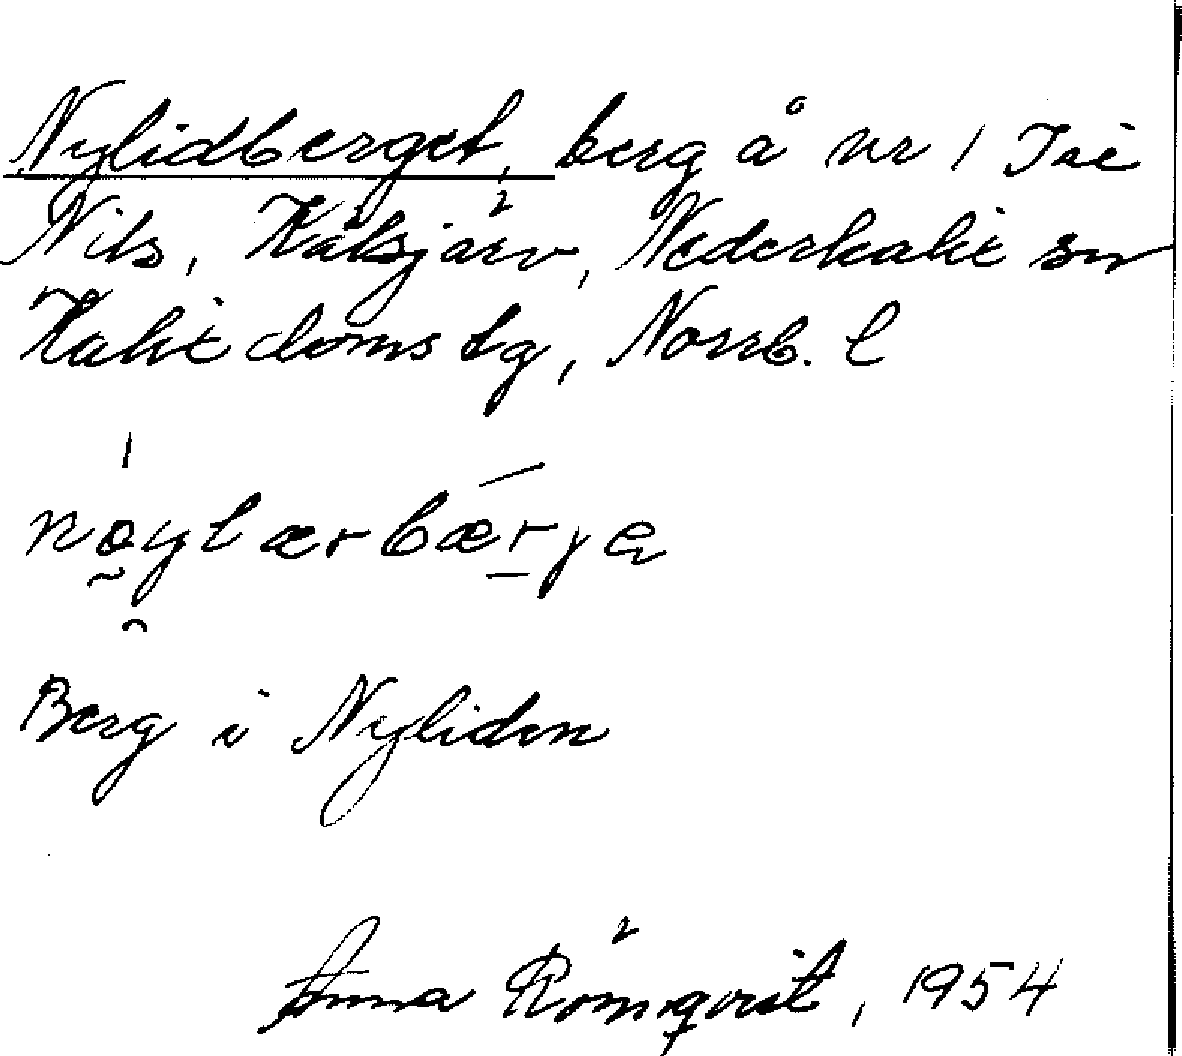 Nylidberget, berg å nr 1 Isi
Nils, Kälsjärv, Nederkalix sn
Kalix domstg, Norrb. l
Berg i Nyliden
Anna Römqvist, 1954